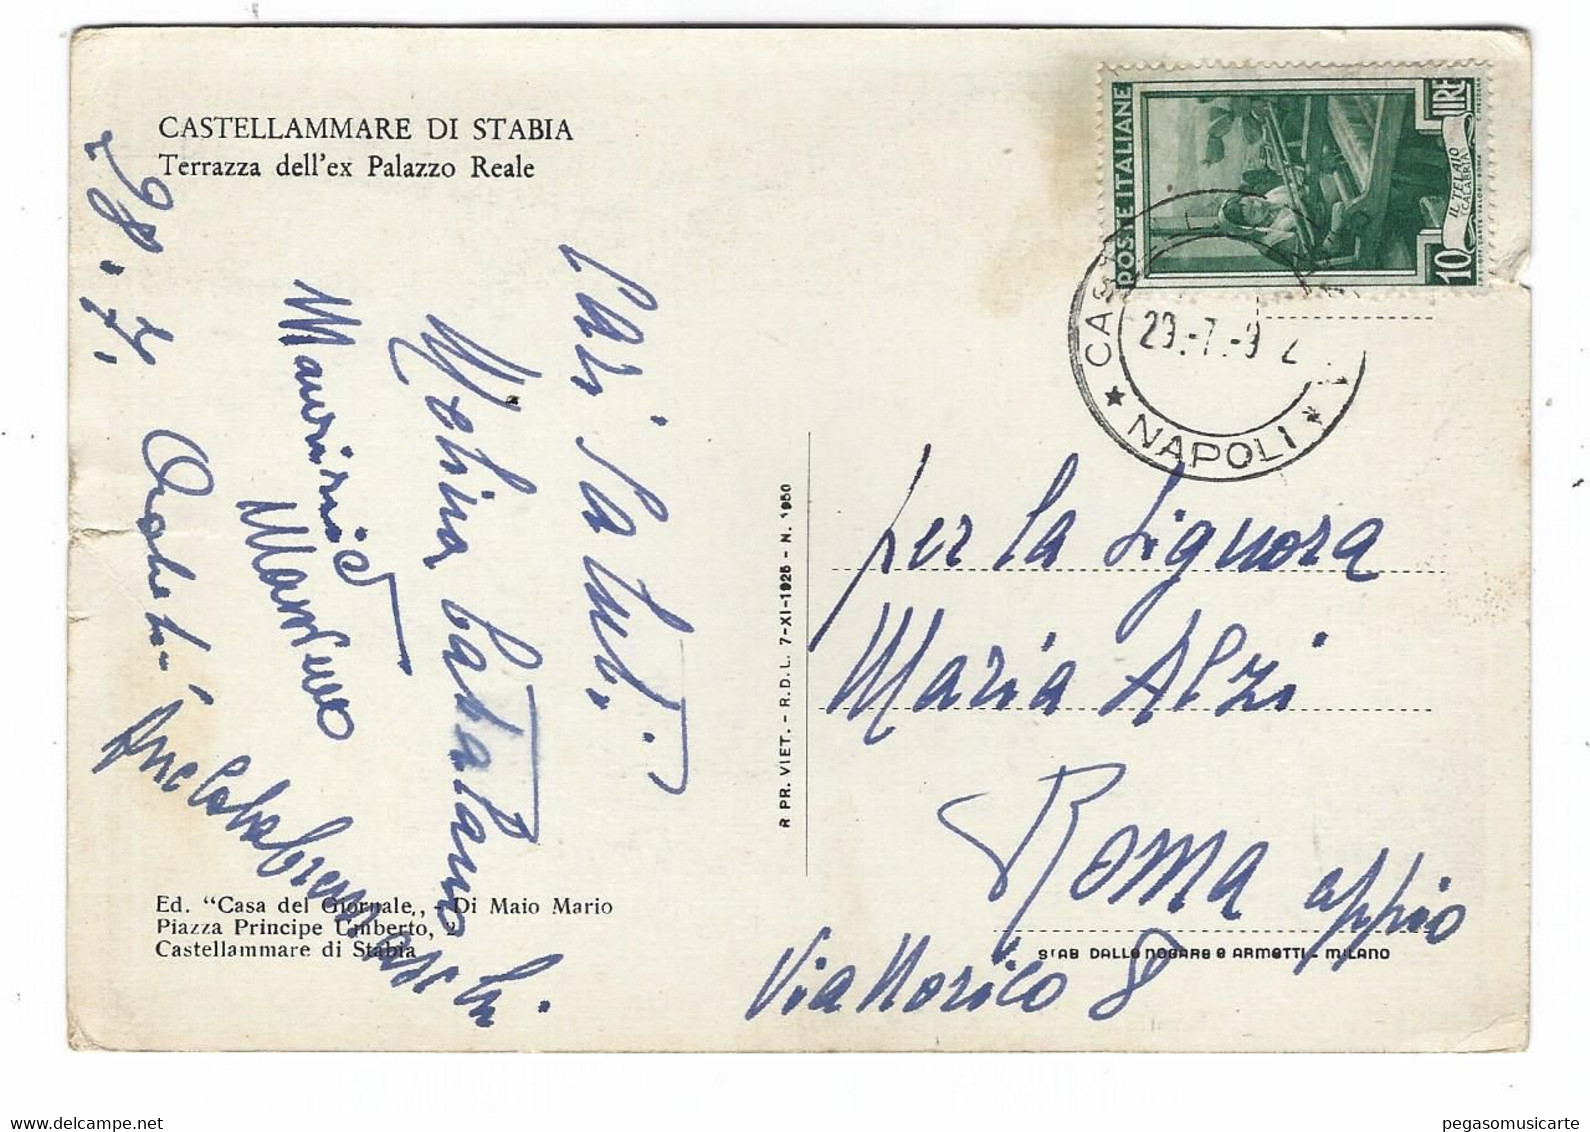 CASTELLAMMARE DI STABIA
Terrazza dell'ex Palazzo Reale
28.7.
Cari saluti.
Melina Catalano
Maurizio
Ed. "Casa del Giornale,, - Di Maio Mario
Piazza Principe Umberto, 2
Castellammare di Stabia
R PR. VIET. - R.D.L. 7-XI-1925 - N. 1950
POSTE ITALIANE
LIRE
10
IL TELAIO
(CALABRIA)
CAST
29.-7.-9 2
★ NAPOLI ★
per la Signora
Maria Alzi
Roma appio
Via Norico 8
STAB DALLE NOGARE E ARMETTI - MILANO
pegasomusicarte